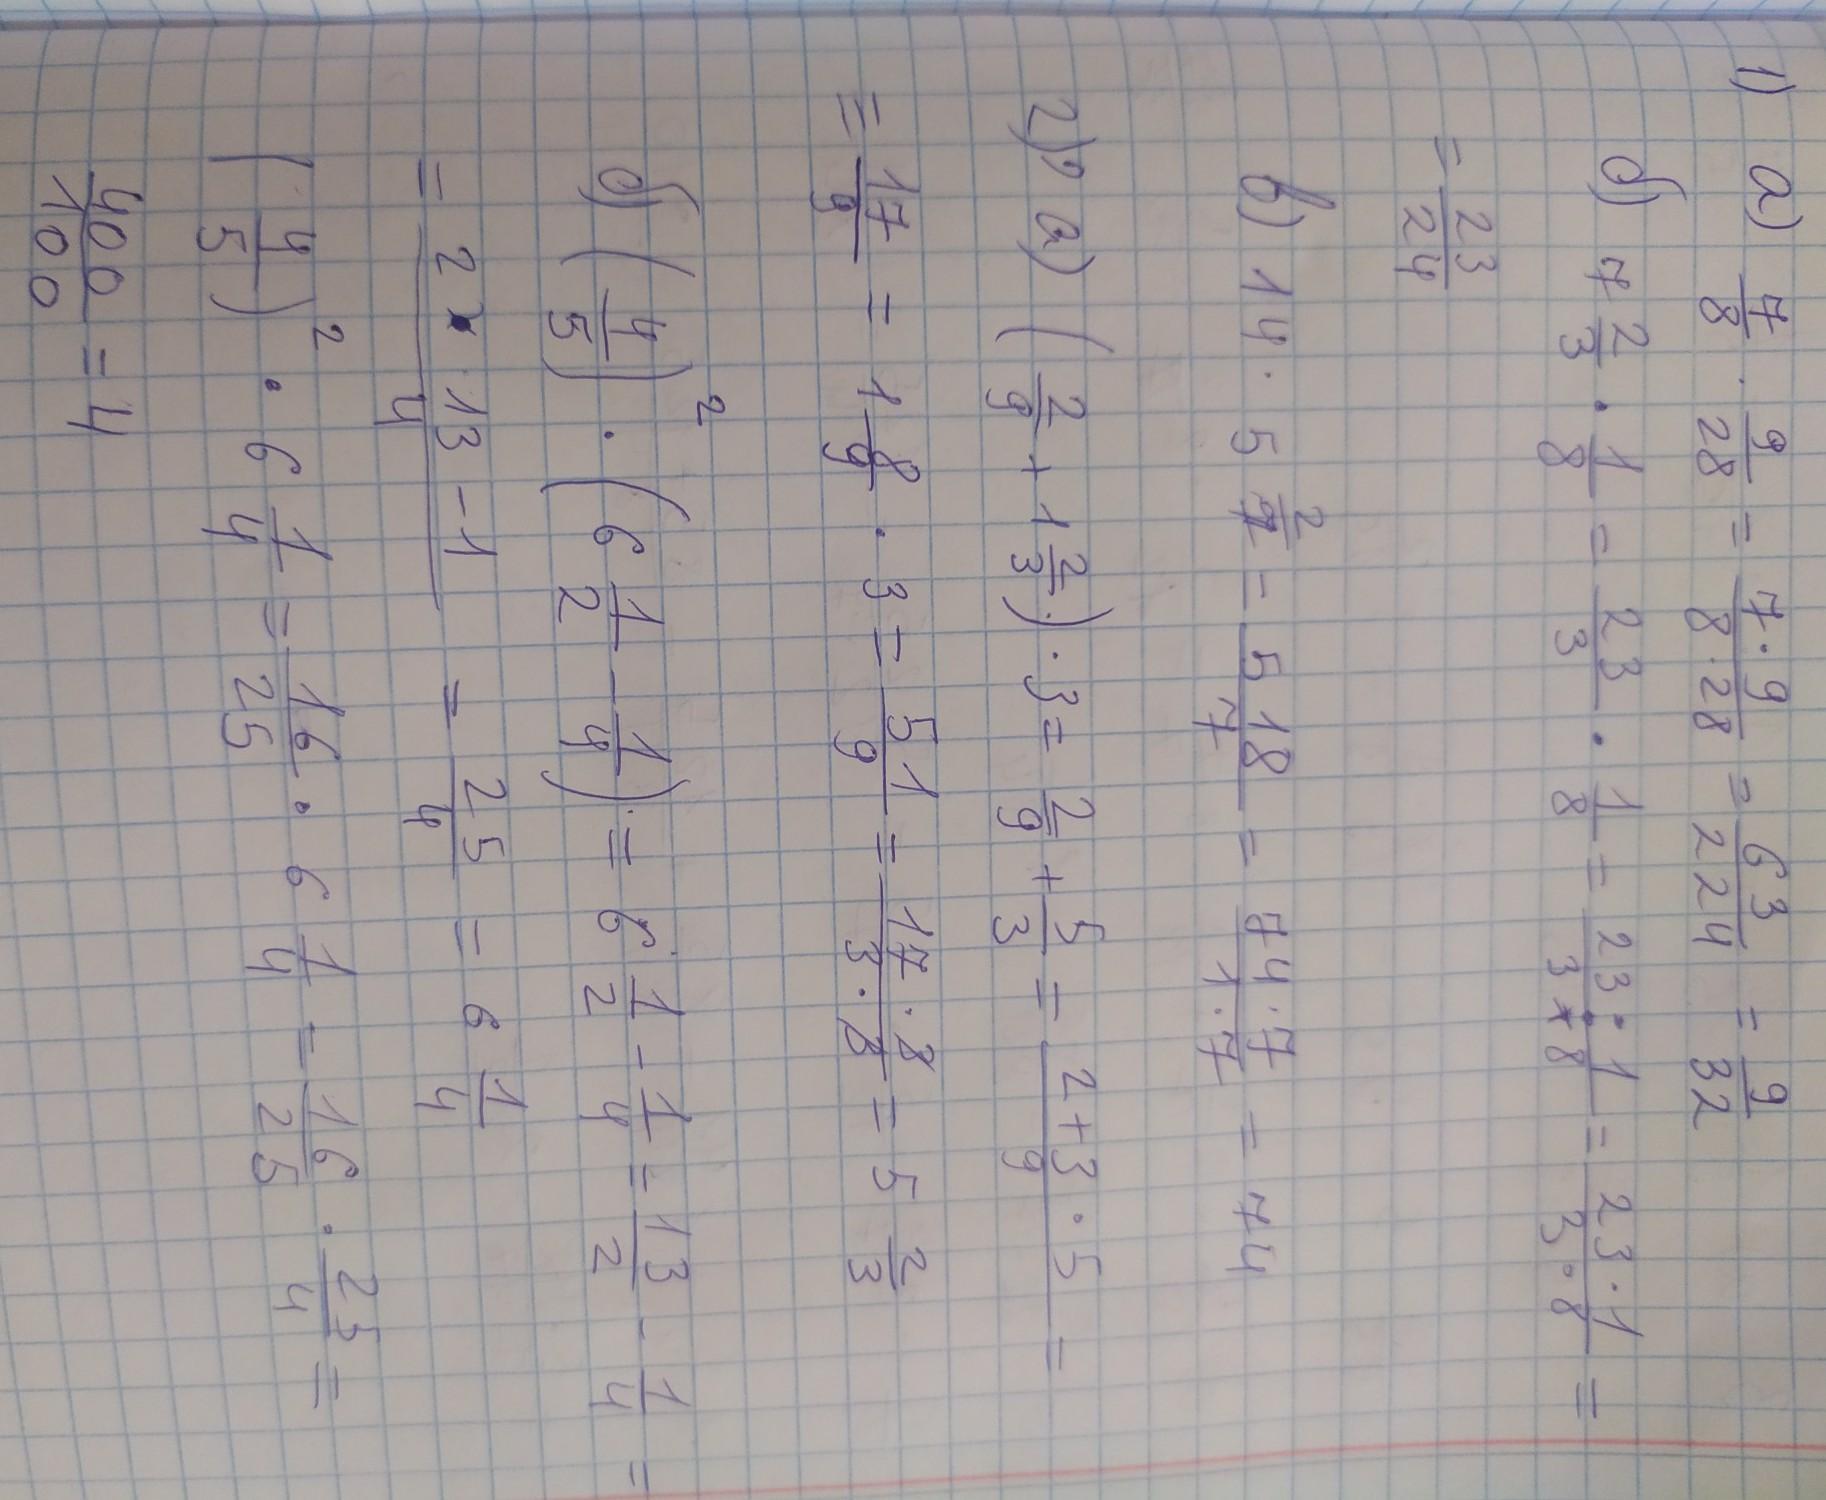 1) а) 7/8 · 9/28 = 7·9/8·28 = 63/224 = 9/32
б) 7 2/3 · 1/8 = 23/3 · 1/8 = 23·1/3·8 = 23·1/3·8 =
= 23/24
в) 14 · 5 2/7 = 518/7 = 74·7/1·7 = 74
2) а) (2/9 + 1 2/3) · 3 = 2/9 + 5/3 = 2+3·5/9 =
= 17/9 = 1 8/9 · 3 = 51/9 = 17·3/3·3 = 5 2/3
б) (4/5)² · (6 1/2 - 1/4) = 6 1/2 - 1/4 = 13/2 - 1/4 =
= 2·13-1/4 = 25/4 = 6 1/4
(4/5)² · 6 1/4 = 16/25 · 6 1/4 = 16/25 · 25/4 =
400/100 = 4